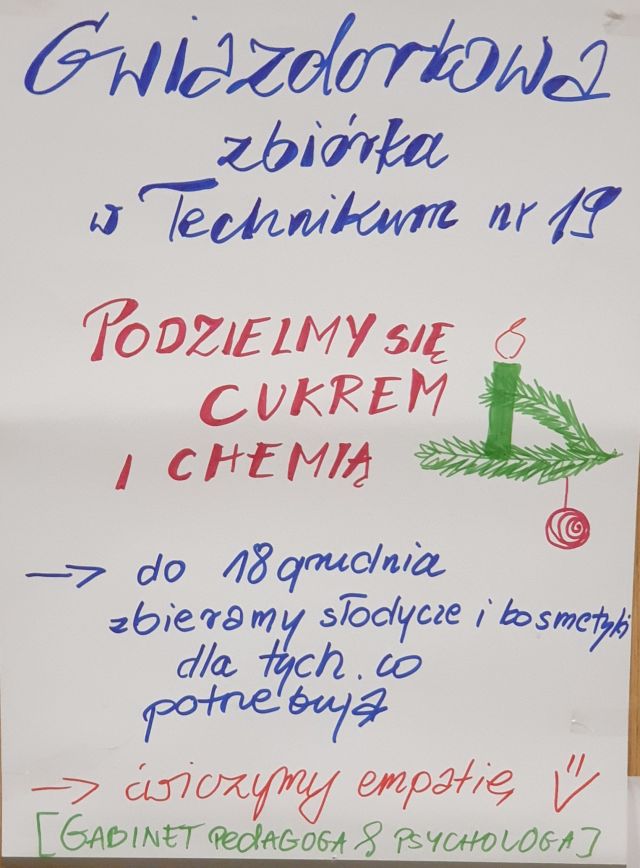 Gwiazdorkowa
zbiórka
w Technikum nr 19
PODZIELMY SIĘ
CUKREM
I CHEMIĄ
→ do 18 grudnia
zbieramy słodycze i kosmetyki
dla tych. co
potrzebują
→ ćwiczymy empatię
[GABINET PEDAGOGA & PSYCHOLOGA]